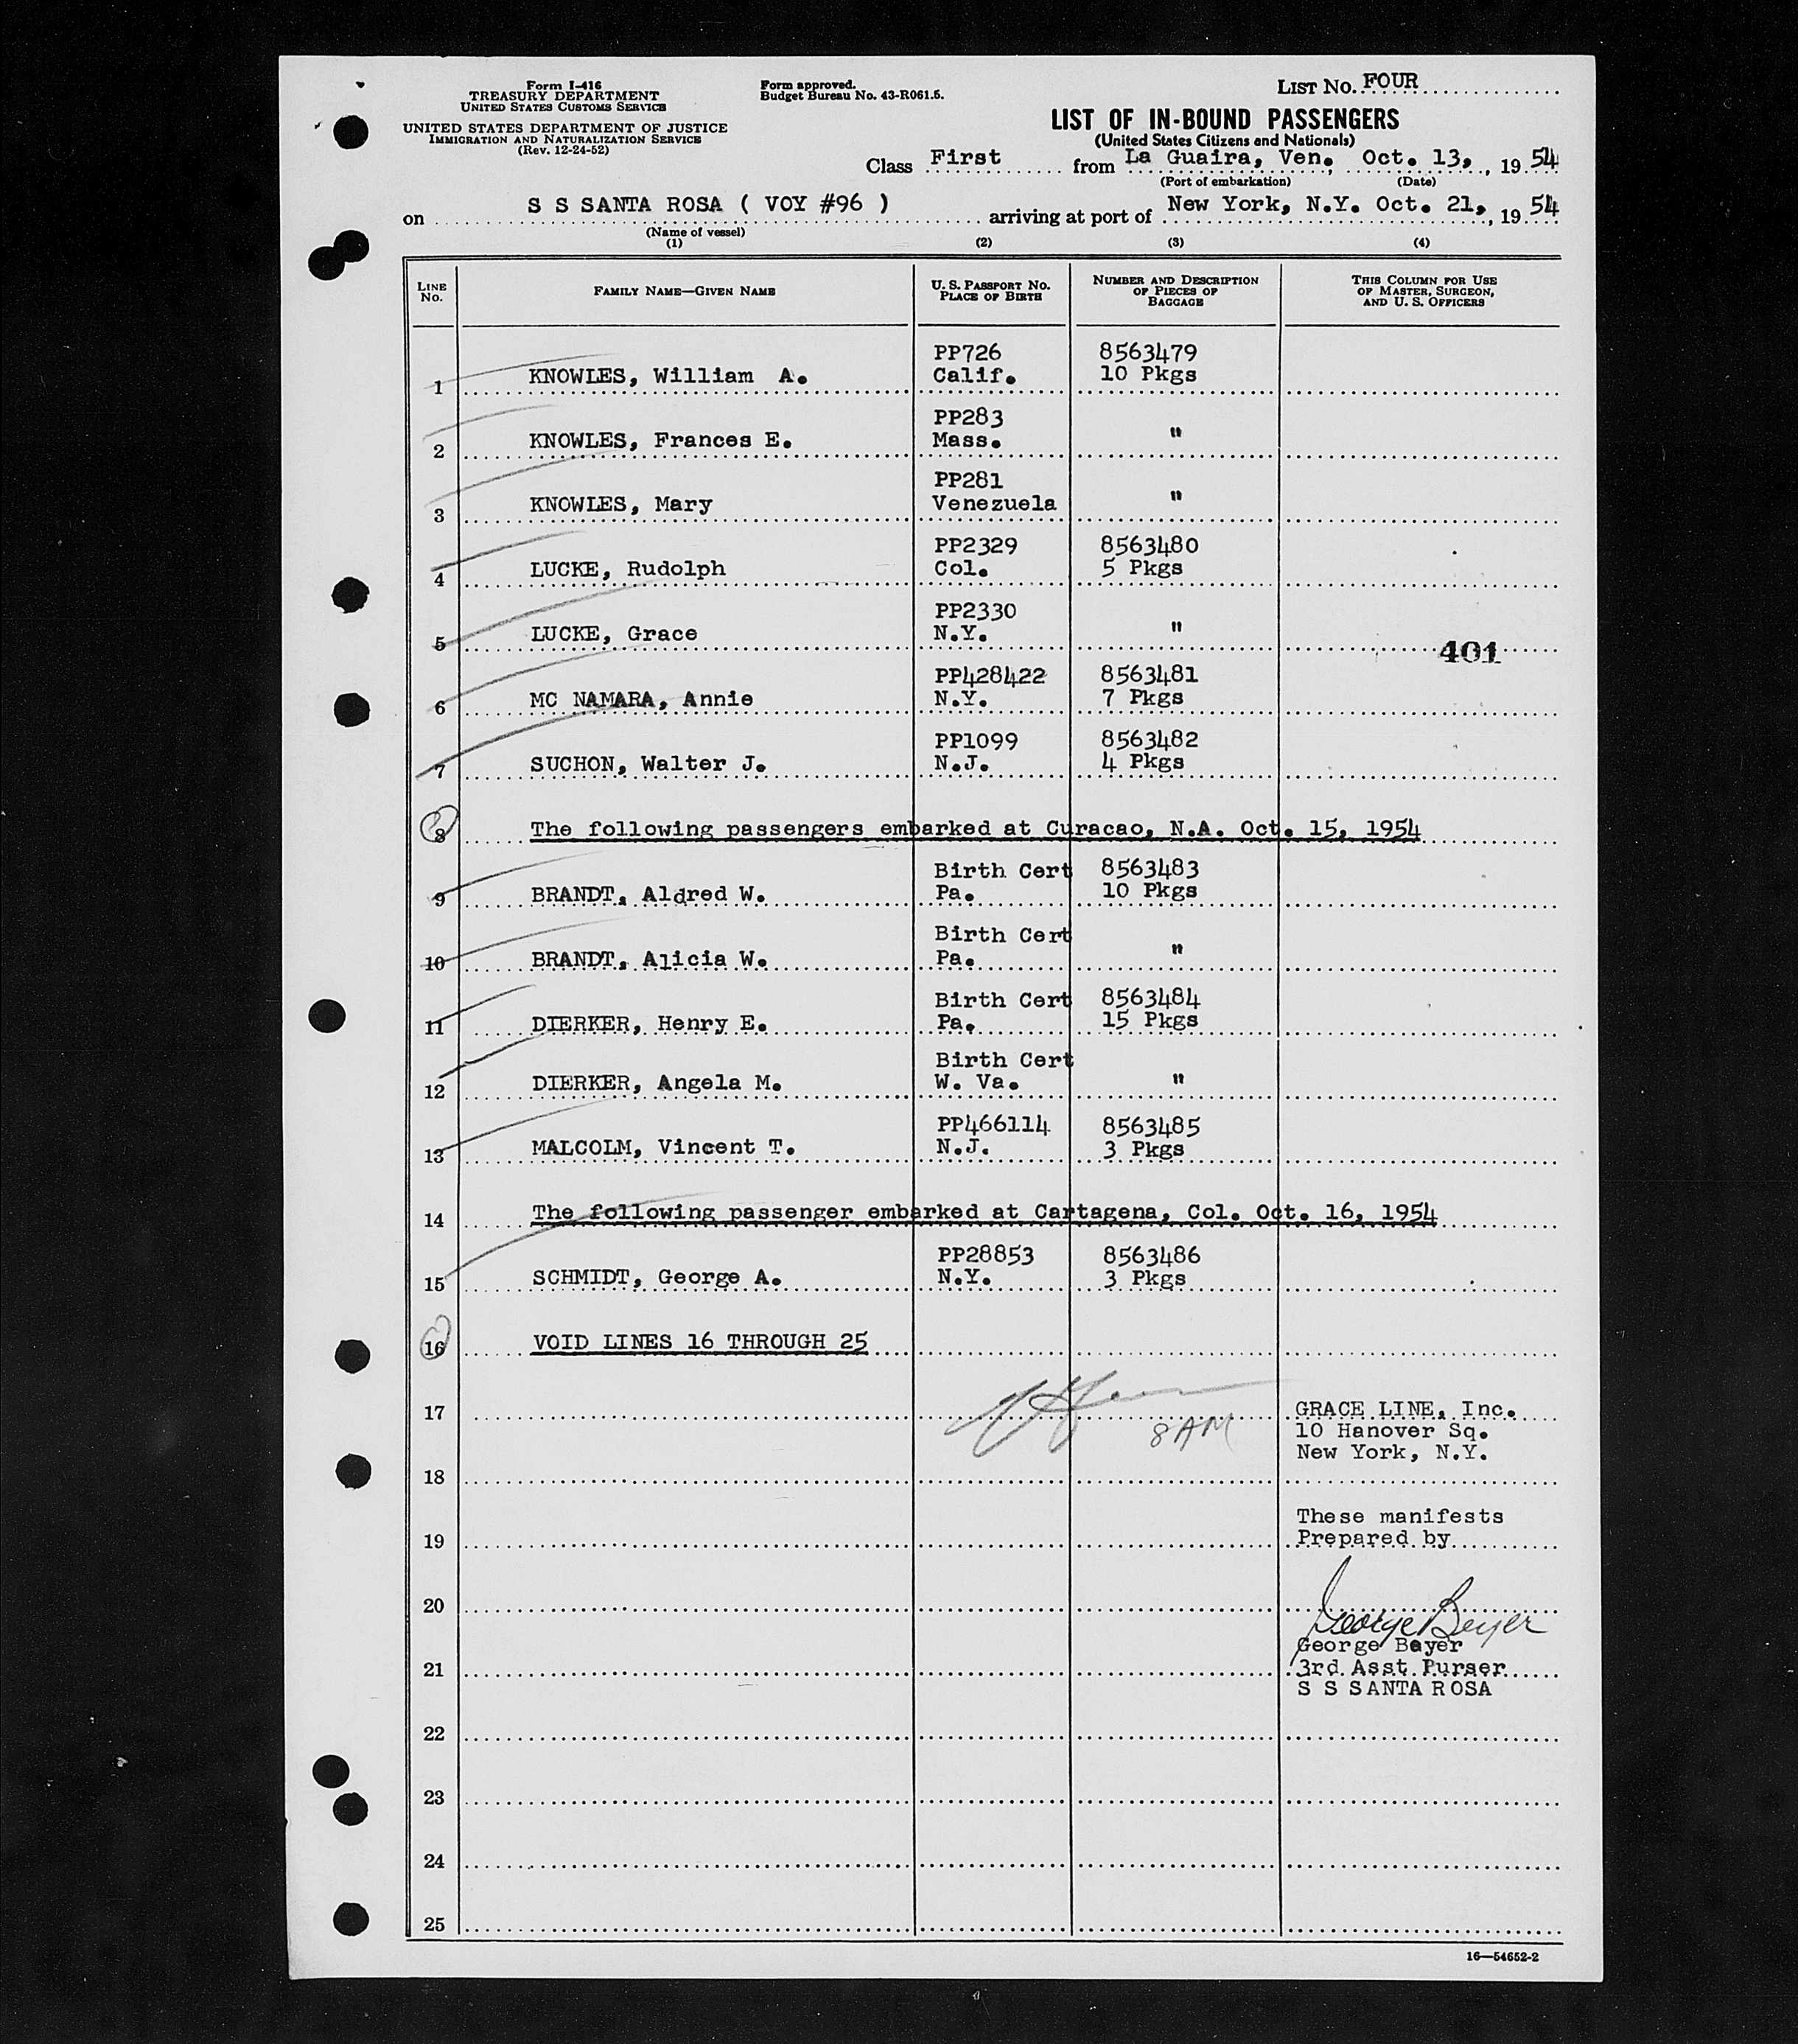 Form I-416
TREASURY DEPARTMENT
UNITED STATES CUSTOMS SERVICE
UNITED STATES DEPARTMENT OF JUSTICE
IMMIGRATION AND NATURALIZATION SERVICE
(Rev. 12-24-52)
Form approved.
Budget Bureau No. 43-R061.5.
LIST No. FOUR
LIST OF IN-BOUND PASSENGERS
(United States Citizens and Nationals)
Class First from La Guaira, Ven. Oct. 13, , 19 54
(Port of embarkation) (Date)
on S S SANTA ROSA ( VOY #96 ) arriving at port of New York, N.Y. Oct. 21, , 19 54
(Name of vessel)
(1) (2) (3) (4)
LINE No. FAMILY NAME—GIVEN NAME U. S. PASSPORT NO. PLACE OF BIRTH NUMBER AND DESCRIPTION OF PIECES OF BAGGAGE THIS COLUMN FOR USE OF MASTER, SURGEON, AND U. S. OFFICERS
PP726 8563479
1 KNOWLES, William A. Calif. 10 Pkgs
PP283
2 KNOWLES, Frances E. Mass. "
PP281
3 KNOWLES, Mary Venezuela "
PP2329 8563480
4 LUCKE, Rudolph Col. 5 Pkgs
PP2330
5 LUCKE, Grace N.Y. "
401
PP428422 8563481
6 MC NAMARA, Annie N.Y. 7 Pkgs
PP1099 8563482
7 SUCHON, Walter J. N.J. 4 Pkgs
8 The following passengers embarked at Curacao, N.A. Oct. 15, 1954
Birth Cert 8563483
9 BRANDT, Aldred W. Pa. 10 Pkgs
Birth Cert
10 BRANDT, Alicia W. Pa. "
Birth Cert 8563484
11 DIERKER, Henry E. Pa. 15 Pkgs
Birth Cert
12 DIERKER, Angela M. W. Va. "
PP466114 8563485
13 MALCOLM, Vincent T. N.J. 3 Pkgs
14 The following passenger embarked at Cartagena, Col. Oct. 16, 1954
PP28853 8563486
15 SCHMIDT, George A. N.Y. 3 Pkgs
16 VOID LINES 16 THROUGH 25
17 GRACE LINE, Inc.
8AM 10 Hanover Sq.
New York, N.Y.
18
These manifests
19 Prepared by
20
George Beyer
George Beyer
21 3rd Asst Purser
S S SANTA ROSA
22
23
24
25
16—54652-2